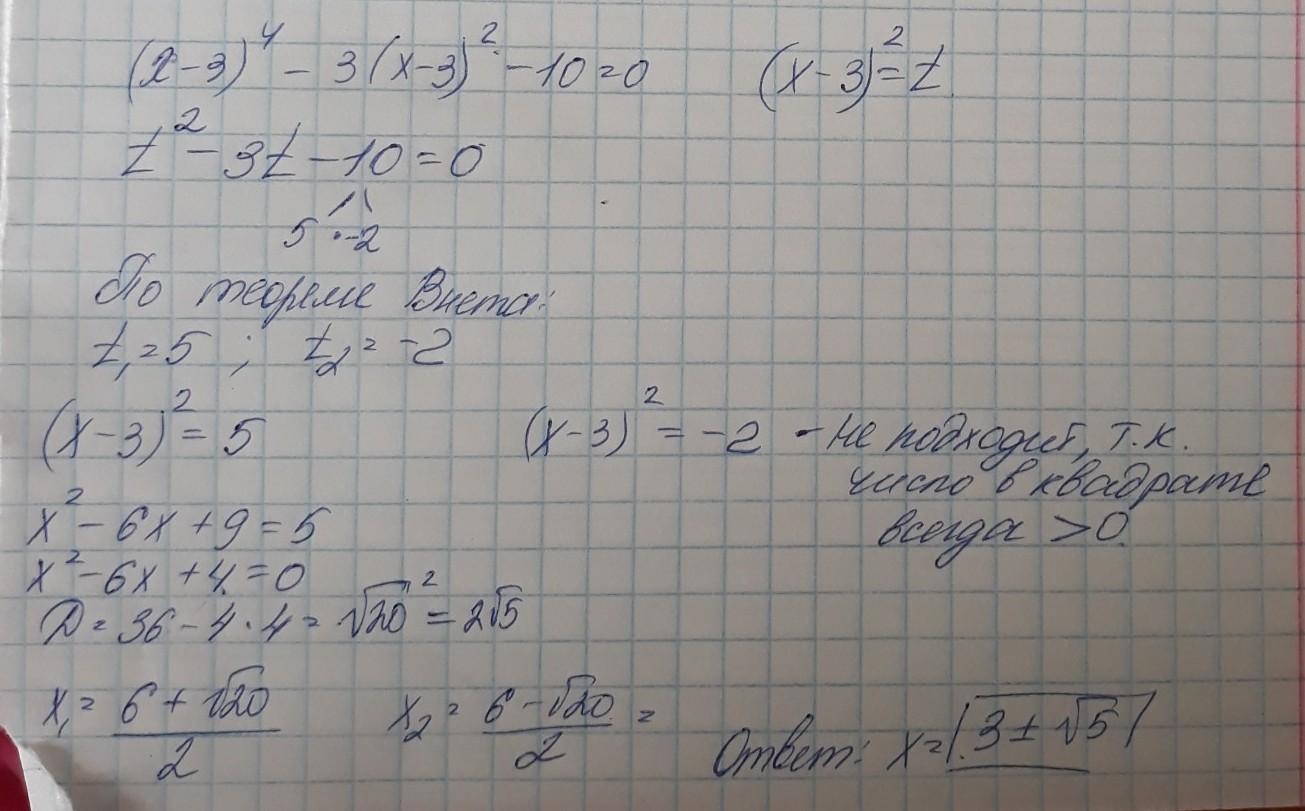 (x-3)⁴ - 3(x-3)² - 10 = 0 (x-3)² = t
t² - 3t - 10 = 0
5 · -2
По теореме Виета:
t₁ = 5 ; t₂ = -2
(x-3)² = 5 (x-3)² = -2 - не подходит, т.к.
число в квадрате
всегда > 0.
x² - 6x + 9 = 5
x² - 6x + 4 = 0
D = 36 - 4 · 4 = √20² = 2√5
x₁ = (6 + √20)/2 x₂ = (6 - √20)/2 =
Ответ: x = |3 ± √5|